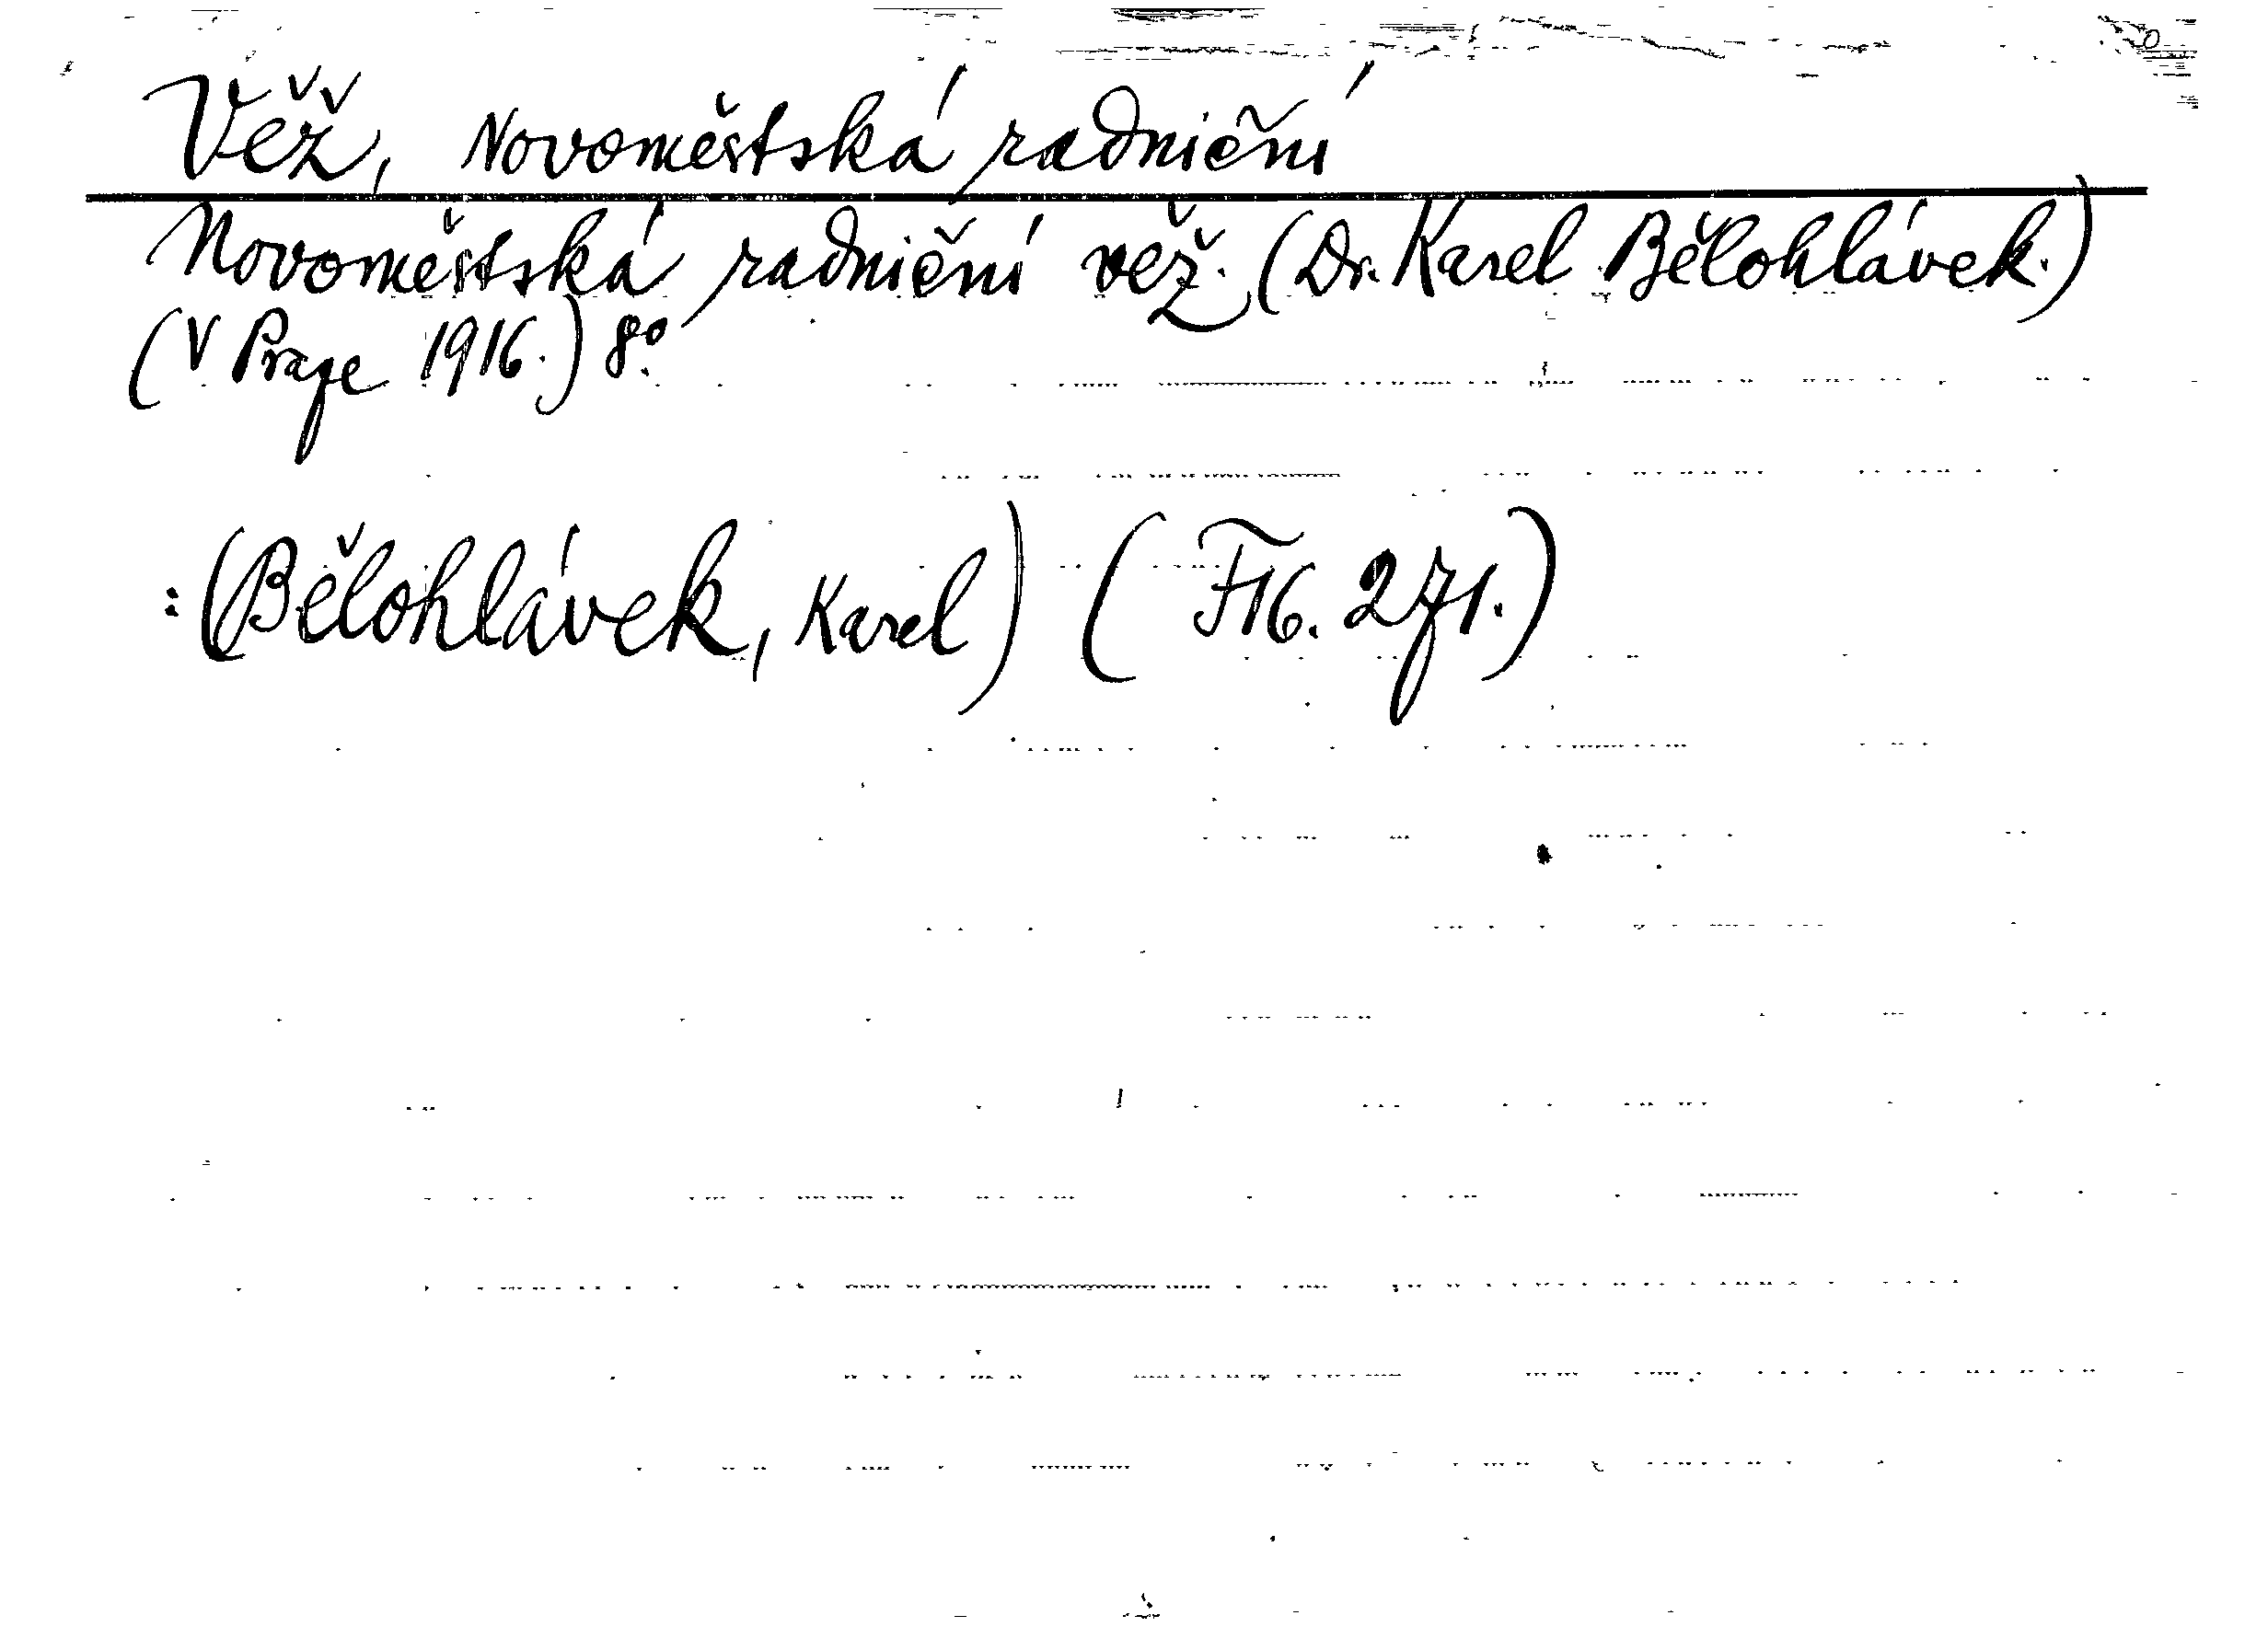 Věž, Novoměstská radniční
Novoměstská radniční věž. (Dr. Karel Bělohlávek.)
(V Praze 1916.) 8°.
:(Bělohlávek, Karel) (F16. 271.)